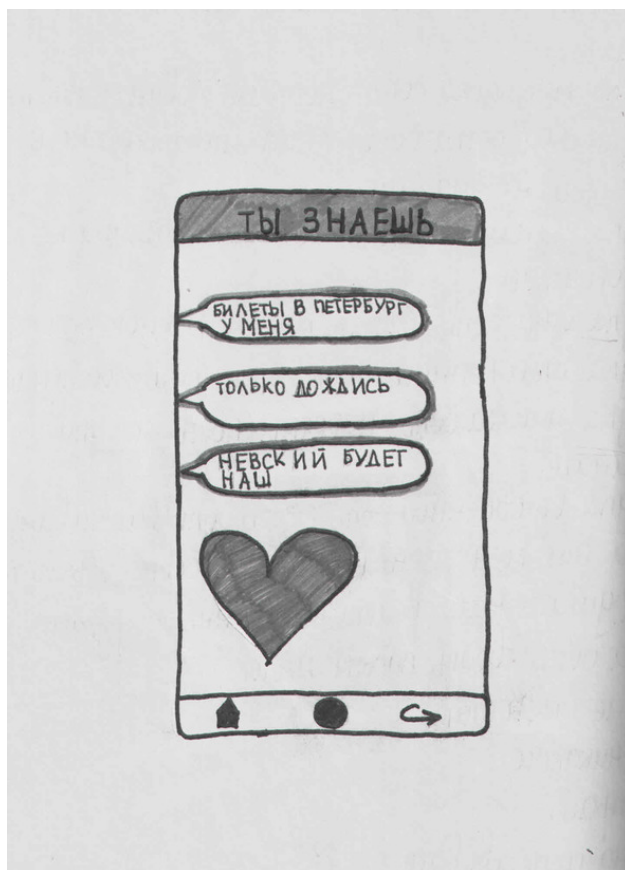 ТЫ ЗНАЕШЬ
БИЛЕТЫ В ПЕТЕРБУРГ
У МЕНЯ
ТОЛЬКО ДОЖДИСЬ
НЕВСКИЙ БУДЕТ
НАШ